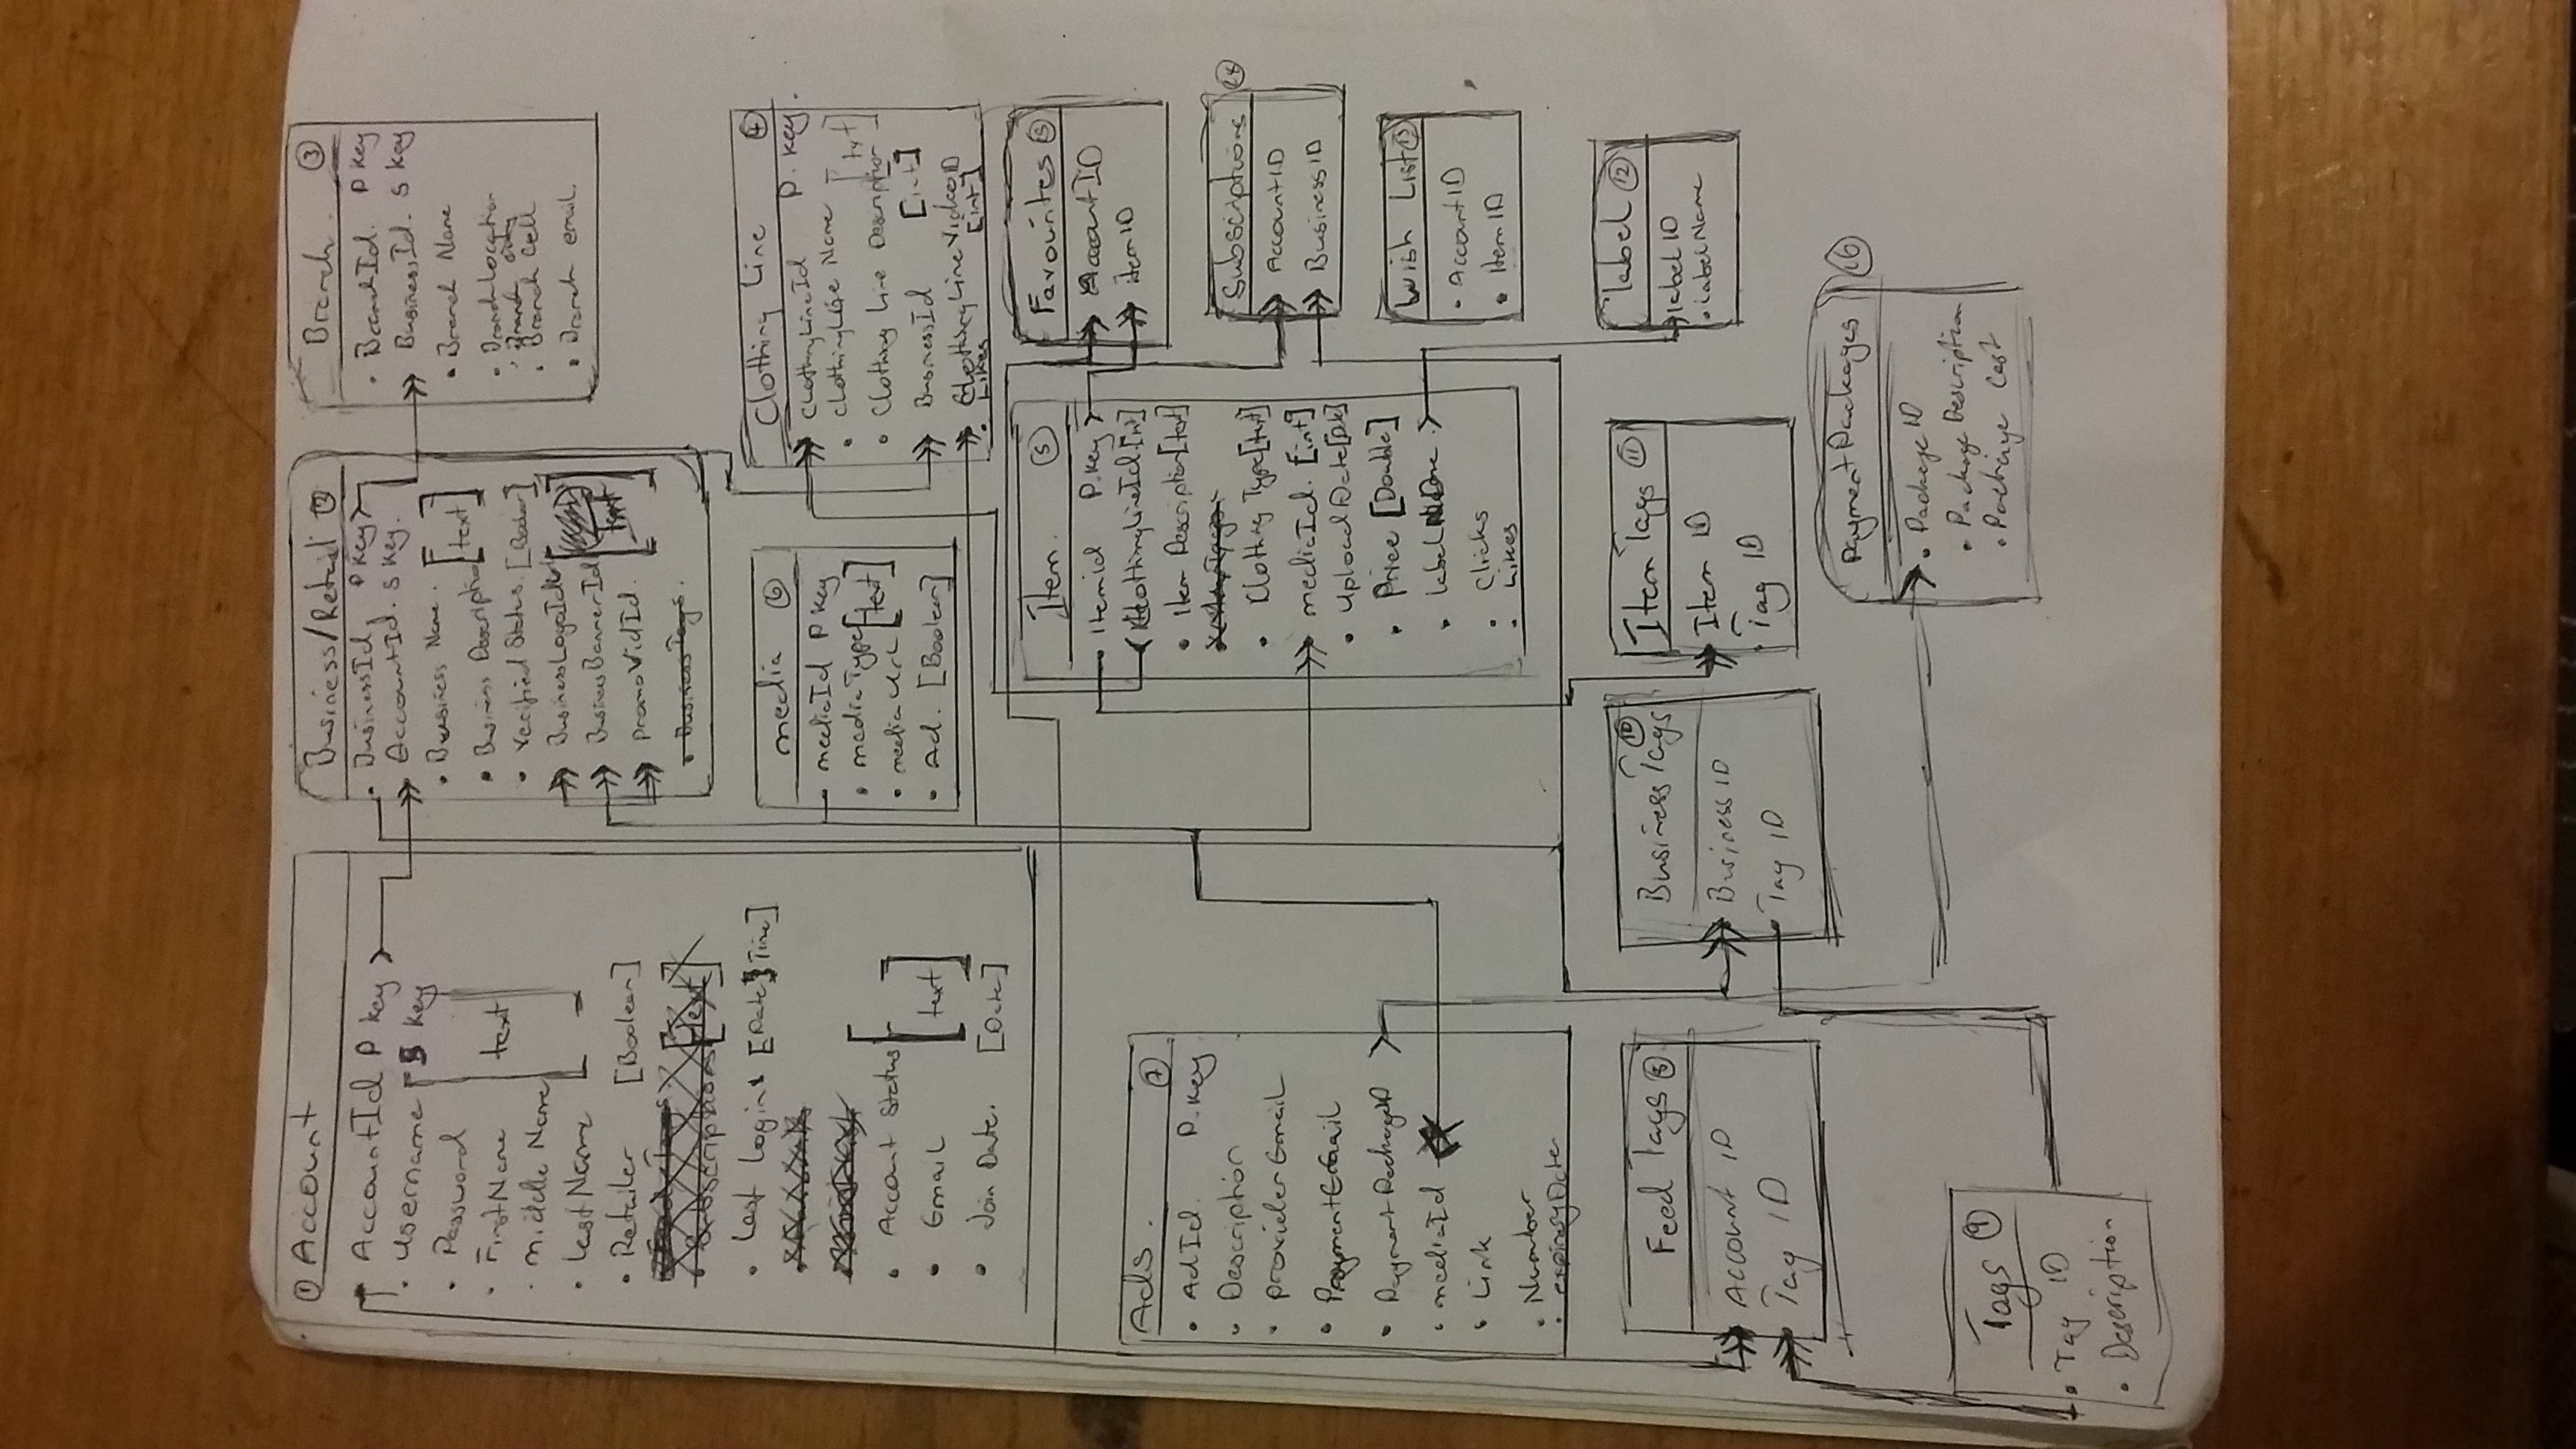 ① Account
AccountId P Key
• Username S Key
• Password
• FirstName
text
• middle Name
• Last Name
• Retailer [Boolean]
Subscriptions [text]
• Last Login [Date Time]
• Account Status
• Email
[text]
• Join Date. [Date]
Business/Retail ②
• BusinessId, P Key
AccountId. S Key.
• Business Name.
[text]
• Business Description
• Verified Status. [Boolean]
BusinessLogoId
BusinessBannerId
text
PromoVidId.
• Business Tags.
Branch ③
• BranchId. P Key
BusinessId. S Key
• Branch Name
• BranchLocation
• Branch Cell
• Branch email.
media ⑥
• mediaId P Key
• mediaType
[text]
• mediaUrl
• Ad. [Boolean]
Clothing Line ④
ClothingLineId P. Key.
• ClothingLine Name
[txt]
• Clothing Line Description
BusinessId [int]
ClothingLineVideoID
• Likes [int]
Item. ⑤
• ItemId P.Key
ClothingLineId.[int]
• Item Description[text]
• Clothing Type[text]
mediaId. [int]
• UploadDate[Date]
• Price [Double]
• label
• Clicks
• Likes
Favourites
AccountID
itemID
Subscriptions
AccountID
BusinessID
Wish List ⑬
• AccountID
• ItemID
label ⑫
labelID
• LabelName
Ads. ⑦
• AdId. P.Key
• Description
• ProviderEmail
• PaymentEmail
• PaymentPackageID
• mediaId
• Link
• Number
• expiryDate
Feed Tags ⑧
Account ID
Tag ID
Business Tags ⑩
Business ID
• Tag ID
Item Tags ⑪
Item ID
• Tag ID
PaymentPackages ⑯
• Package ID
• Package Description
• Package Cost
Tags ⑨
• Tag ID
• Description